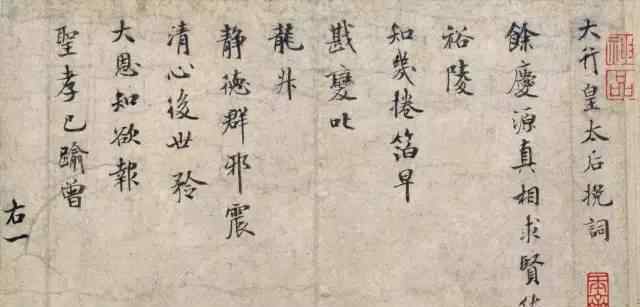 大行皇太后挽詞
餘慶源真相求賢
裕陵
知幾捲箔早
戡變叱
龍升
静德群邪震
清心後世矜
大恩知欲報
聖孝已踰曾
右一